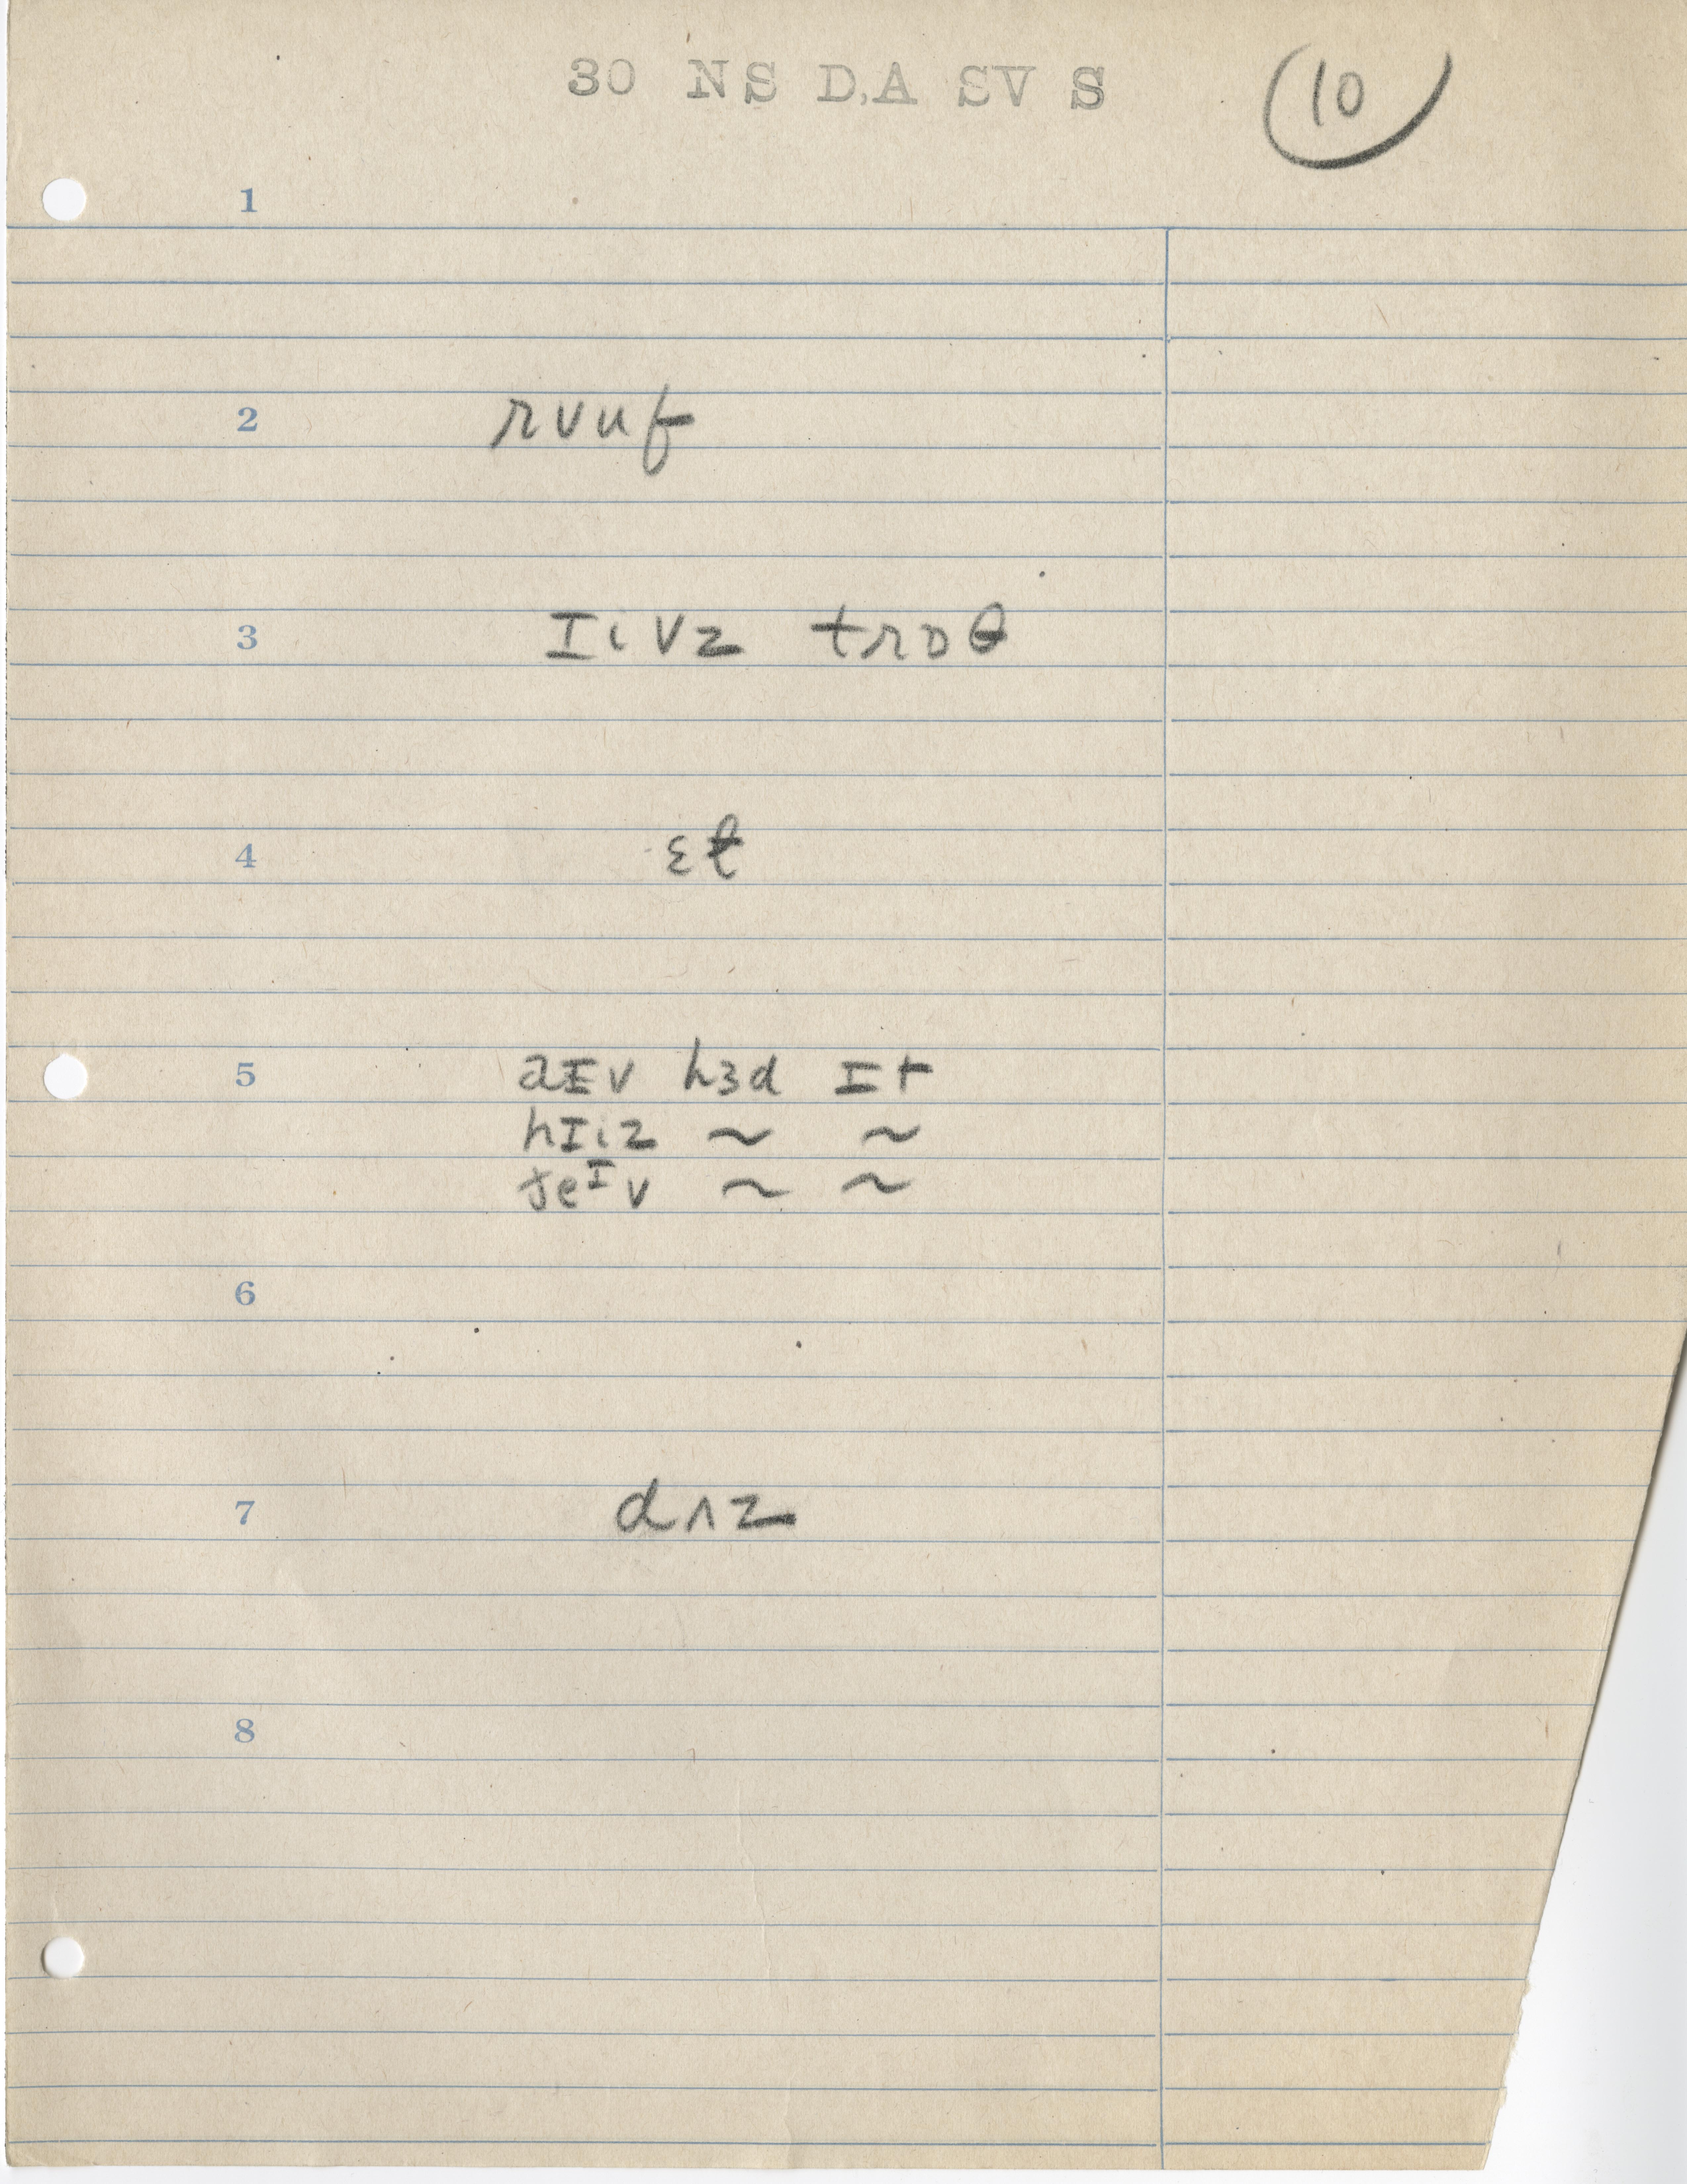 30 NS D,A SV S 10
1
2 rvuf
3 Iivz trɒθ
4 ɛt
5 aɪv hɜd ɪt
hIiz ~ ~
ðeᴵv ~ ~
6
7 dʌz
8